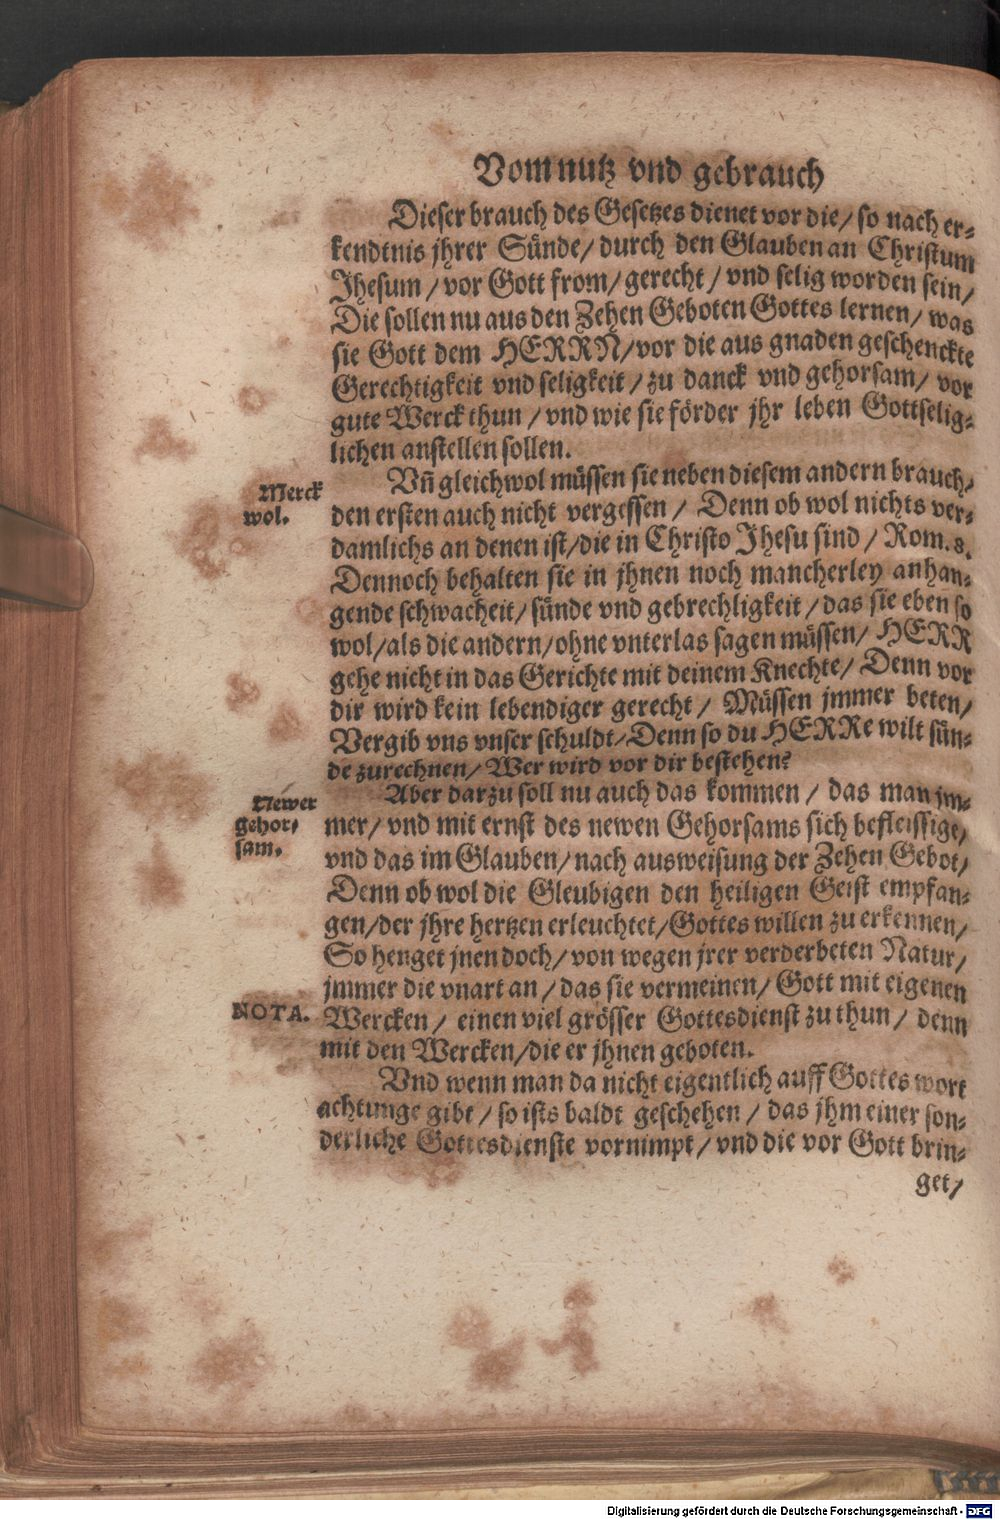 Vom nutz vnd gebrauch
Dieser brauch des Gesetzes dienet vor die/ so nach er-
kendtnis jhrer Sünde/ durch den Glauben an Christum
Jhesum/ vor Gott from/ gerecht/ vnd selig worden sein/
Die sollen nu aus den Zehen Geboten Gottes lernen/ was
sie Gott dem HERRN/ vor die aus gnaden geschenckte
Gerechtigkeit vnd seligkeit/ zu danck vnd gehorsam/ vor
gute Werck thun/ vnd wie sie förder jhr leben Gottselig-
lichen anstellen sollen.
Merck
wol.
Vñ gleichwol müssen sie neben diesem andern brauch/
den ersten auch nicht vergessen/ Denn ob wol nichts ver-
damlichs an denen ist/ die in Christo Jhesu sind/ Rom. 8.
Dennoch behalten sie in jhnen noch mancherley anhan-
gende schwacheit/ sünde vnd gebrechligkeit/ das sie eben so
wol/ als die andern/ ohne vnterlas sagen müssen/ HERR
gehe nicht in das Gerichte mit deinem Knechte/ Denn vor
dir wird kein lebendiger gerecht/ Müssen jmmer beten/
Vergib vns vnser schuldt/ Denn so du HERRe wilt sün-
de zurechnen/ Wer wird vor dir bestehen?
Newer
gehor-
sam.
Aber darzu soll nu auch das kommen/ das man jm-
mer/ vnd mit ernst des newen Gehorsams sich befleissige/
vnd das im Glauben/ nach ausweisung der Zehen Gebot/
Denn ob wol die Gleubigen den heiligen Geist empfan-
gen/ der jhre hertzen erleuchtet/ Gottes willen zu erkennen/
So henget jnen doch/ von wegen jrer verderbeten Natur/
jmmer die vnart an/ das sie vermeinen/ Gott mit eigenen
NOTA.
Wercken/ einen viel grösser Gottesdienst zu thun/ denn
mit den Wercken/ die er jhnen geboten.
Vnd wenn man da nicht eigentlich auff Gottes wort
achtunge gibt/ so ists baldt geschehen/ das jhm einer son-
derliche Gottesdienste vornimpt/ vnd die vor Gott brin-
get/
Digitalisierung gefördert durch die Deutsche Forschungsgemeinschaft - DFG